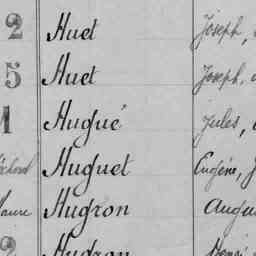 2 Huet Joseph,
5 Huet Joseph,
1 Hugué Jules,
Huguet Eugène, J
Hugron Augu
2 Hugron Henri